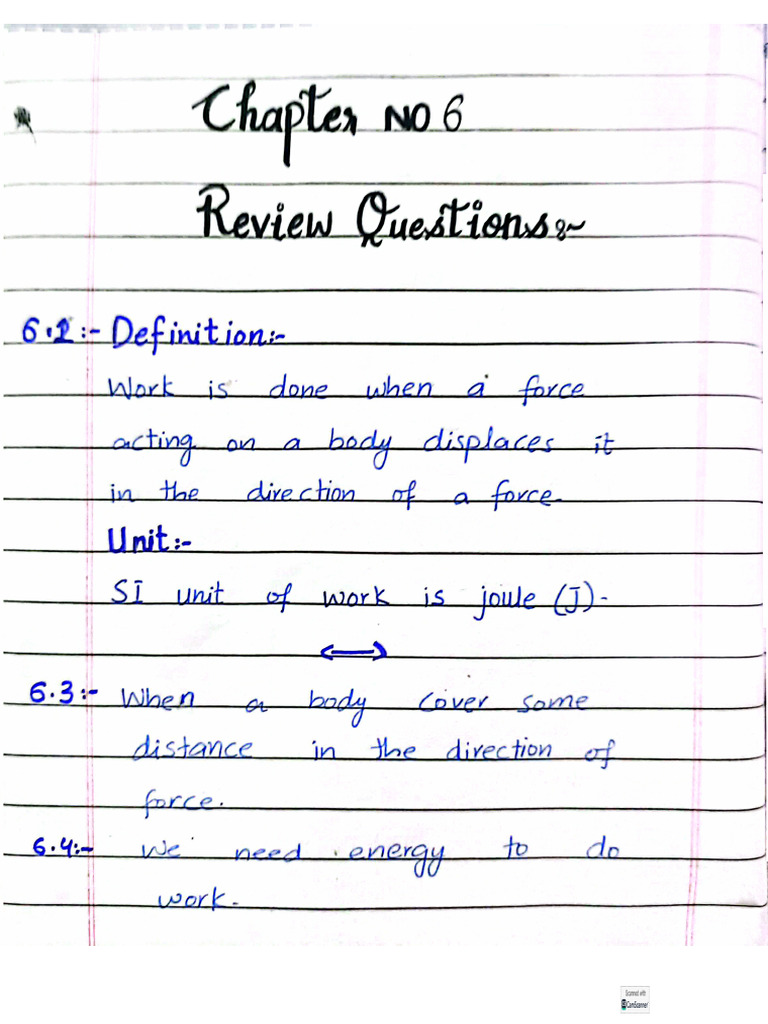 Chapter NO 6
Review Questions:~
6.2:- Definition:-
Work is done when a force
acting on a body displaces it
in the direction of a force.
Unit:-
SI unit of work is joule (J)-
6.3:- When a body cover some
distance in the direction of
force.
6.4:- We need energy to do
work.
Scanned with
CS CamScanner